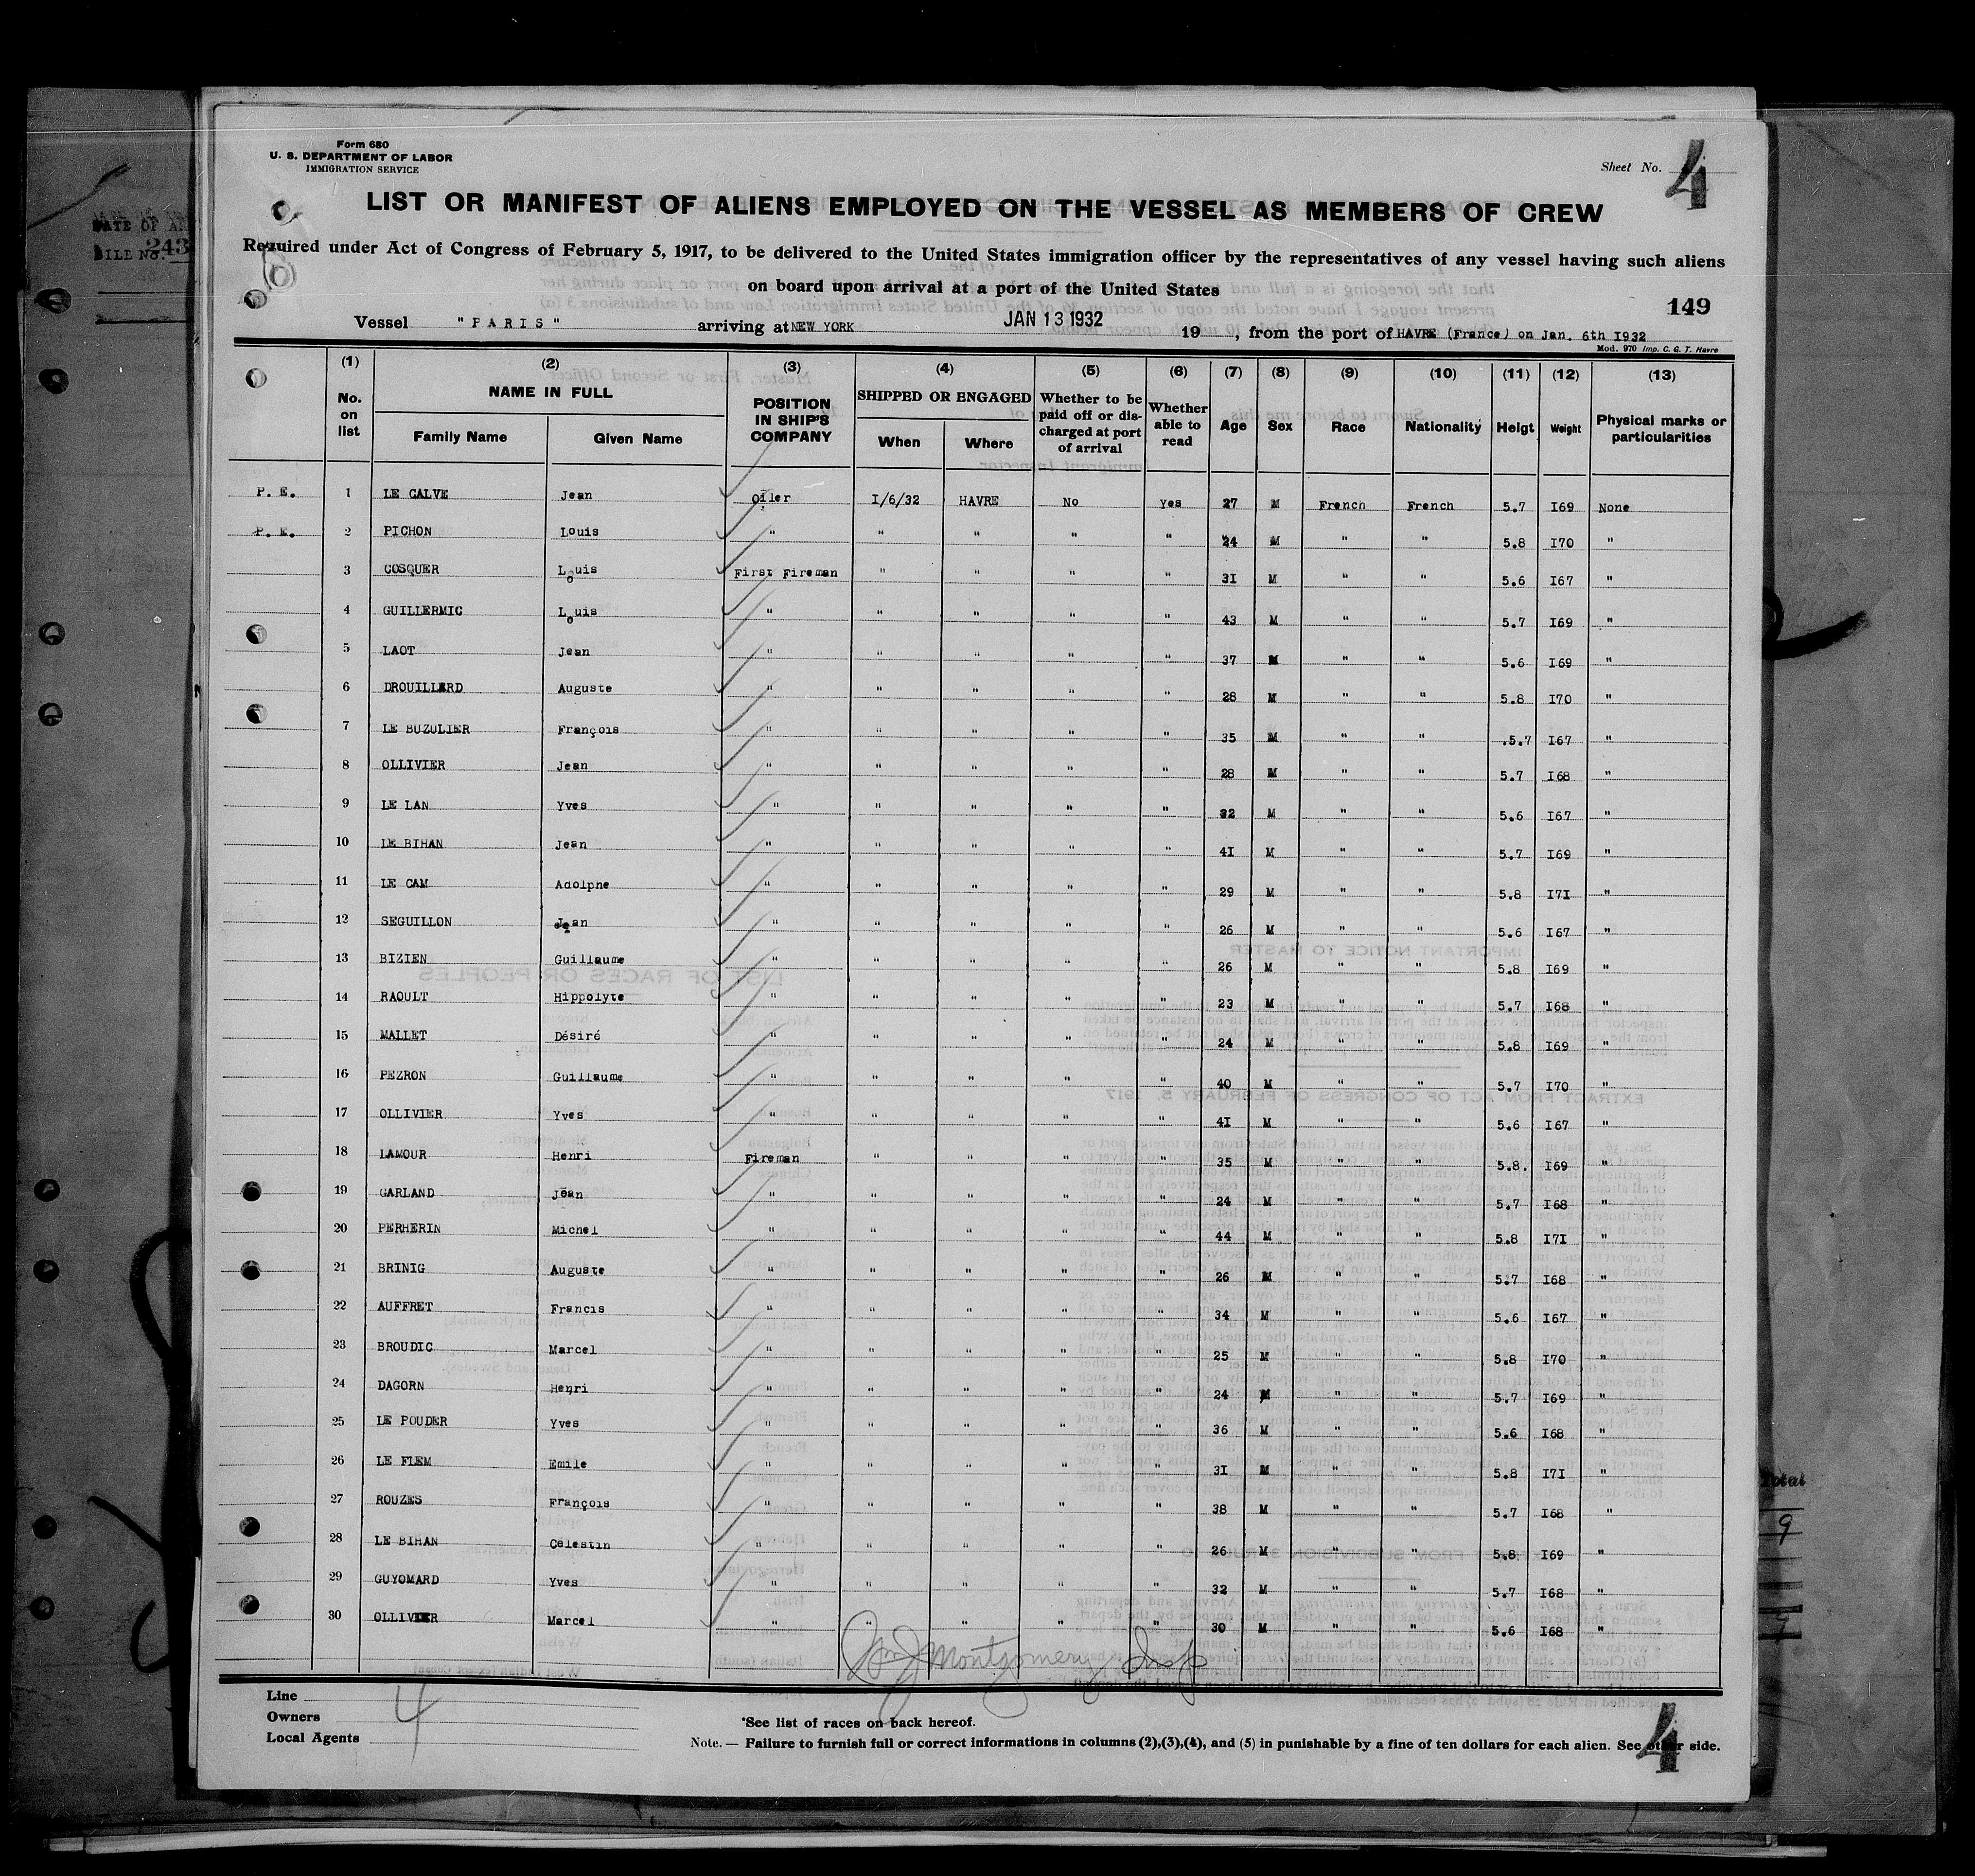 Form 680
U. S. DEPARTMENT OF LABOR
IMMIGRATION SERVICE
Sheet No. 4
LIST OR MANIFEST OF ALIENS EMPLOYED ON THE VESSEL AS MEMBERS OF CREW
Required under Act of Congress of February 5, 1917, to be delivered to the United States immigration officer by the representatives of any vessel having such aliens
on board upon arrival at a port of the United States
149
Vessel "PARIS" arriving at NEW YORK JAN 13 1932 19 , from the port of HAVRE (France) on Jan. 6th I932
Mod. 970 Imp. C. G. T. Havre
(1) (2) (3) (4) (5) (6) (7) (8) (9) (10) (11) (12) (13)
No. on list NAME IN FULL Family Name Given Name POSITION IN SHIP'S COMPANY SHIPPED OR ENGAGED When Where Whether to be paid off or discharged at port of arrival Whether able to read Age Sex Race Nationality Heigt Weight Physical marks or particularities
P. E. 1 LE CALVE Jean Oiler I/6/32 HAVRE No Yes 27 M French French 5.7 I69 None
P. E. 2 PICHON Louis " " " " " 24 M " " 5.8 I70 "
3 COSQUER Louis First Fireman " " " " 3I M " " 5.6 I67 "
4 GUILLERMIC Louis " " " " " 43 M " " 5.7 I69 "
5 LAOT Jean " " " " " 37 M " " 5.6 I69 "
6 DROUILLARD Auguste " " " " " 28 M " " 5.8 I70 "
7 LE BUZULIER François " " " " " 35 M " " .5.7 I67 "
8 OLLIVIER Jean " " " " " 28 M " " 5.7 I68 "
9 LE LAN Yves " " " " " 32 M " " 5.6 I67 "
10 LE BIHAN Jean " " " " " 4I M " " 5.7 I69 "
11 LE CAM Adolphe " " " " " 29 M " " 5.8 I7I "
12 SEGUILLON Jean " " " " " 26 M " " 5.6 I67 "
13 BIZIEN Guillaume " " " " " 26 M " " 5.8 I69 "
14 RAOULT Hippolyte " " " " " 23 M " " 5.7 I68 "
15 MALLET Désiré " " " " " 24 M " " 5.8 I69 "
16 PEZRON Guillaume " " " " " 40 M " " 5.7 I70 "
17 OLLIVIER Yves " " " " " 4I M " " 5.6 I67 "
18 LAMOUR Henri Fireman " " " " 35 M " " 5.8. I69 "
19 GARLAND Jean " " " " " 24 M " " 5.7 I68 "
20 PERHERIN Michel " " " " " 44 M " " 5.8 I7I "
21 BRINIG Auguste " " " " " 26 M " " 5.7 I68 "
22 AUFFRET Francis " " " " " 34 M " " 5.6 I67 "
23 BROUDIC Marcel " " " " " 25 M " " 5.8 I70 "
24 DAGORN Henri " " " " " 24 M " " 5.7 I69 "
25 LE POUDER Yves " " " " " 36 M " " 5.6 I68 "
26 LE FLEM Emile " " " " " 3I M " " 5.8 I7I "
27 ROUZES François " " " " " 38 M " " 5.7 I68 "
28 LE BIHAN Célestin " " " " " 26 M " " 5.8 I69 "
29 GUYOMARD Yves " " " " " 32 M " " 5.7 I68 "
30 OLLIVIER Marcel " " " " " 30 M " " 5.6 I68 "
Wm J Montgomery Insp
Line
Owners
Local Agents
4
*See list of races on back hereof.
Note. — Failure to furnish full or correct informations in columns (2),(3),(4), and (5) in punishable by a fine of ten dollars for each alien. See other side.
4
DATE OF
FILE No. 243
Total
9